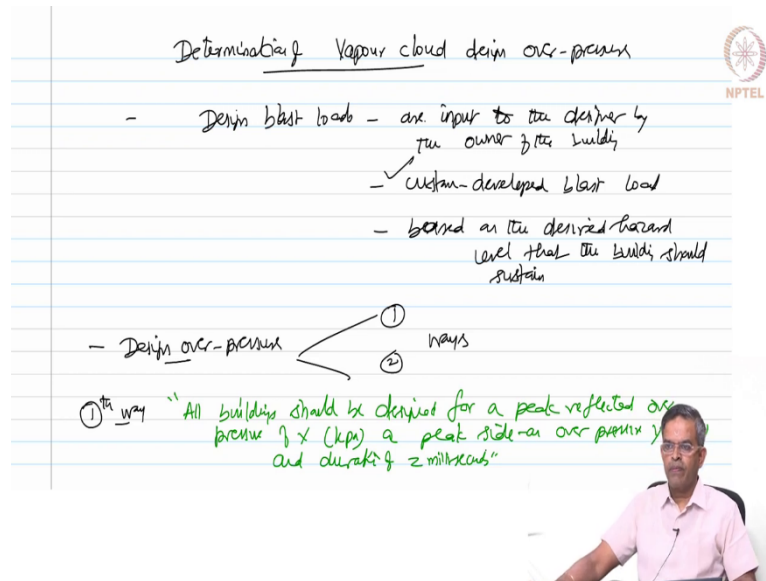 Determination of Vapour cloud design over-pressure
NPTEL
- Design blast loads - are input to the designer by
the owner of the building
- custom-developed blast load
- based on the desired hazard
level that the building should
sustain
- Design over-pressure
①
ways
②
①th way "All buildings should be designed for a peak reflected over
pressure of x (kpa) a peak side-on over pressure y
and duration of z milliseconds"